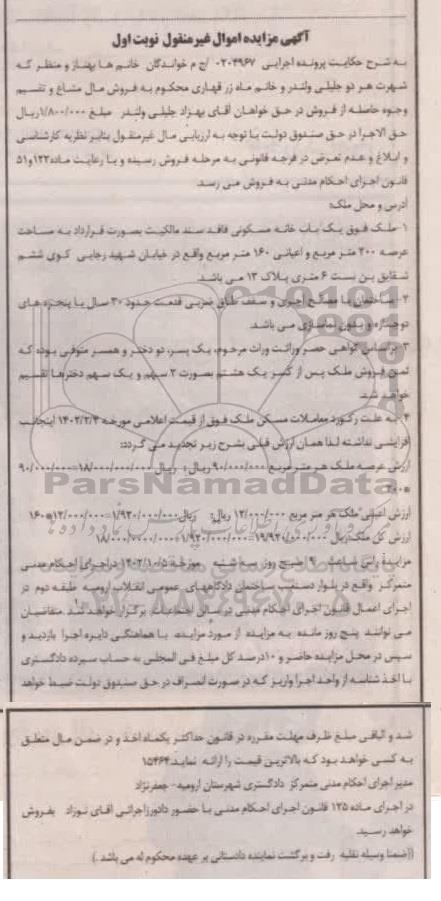 آگهی مزایده اموال غیرمنقول نوبت اول
به شرح حکایت پرونده اجرایی ۰۲۰۴۹۶۷ /ج م خواندگان خانم ها بهناز و منظر که
شهرت هر دو جلیلی ولندر و خانم ماه زر قهاری محکوم به فروش مال مشاع و تقسیم
وجوه حاصله از فروش در حق خواهان آقای بهزاد جلیلی ولندر مبلغ ۱/۸۰۰/۰۰۰ریال
حق الاجرا در حق صندوق دولت با توجه به ارزیابی مال غیرمنقول بنابر نظریه کارشناسی
و ابلاغ و عدم تعرض در فرجه قانونی به مرحله فروش رسیده و با رعایت ماده۱۲۲و۵۱
قانون اجرای احکام مدنی به فروش می رسد.
آدرس و محل ملک:
۱-ملک فوق یک باب خانه مسکونی فاقد سند مالکیت بصورت قرارداد به مساحت
عرصه ۲۰۰ متر مربع و اعیانی ۱۶۰ متر مربع واقع در خیابان شهید رجایی کوی ششم
شقایق بن بست ۶ متری پلاک ۱۳ می باشد.
۲-ساختمان با مصالح آجری و سقف طاق ضربی قدمت حدود ۳۰ سال با پنجره های
دوجداره و بدون نماسازی می باشد.
۳-براساس گواهی حصر وراثت وراث مرحوم، یک پسر، دو دختر و همسر متوفی بوده که
ثمن فروش ملک پس از کسر یک هشتم بصورت ۲ سهم و یک سهم دخترها تقسیم
خواهد شد.
۴-به علت رکورد معاملات مسکن ملک فوق از قیمت اعلامی مورخه ۱۴۰۲/۲/۳ اینجانب
افزایشی نداشته لذا همان ارزش قبلی بشرح زیر تجدید می گردد:
ارزش عرصه ملک هر متر مربع ۹۰/۰۰۰/۰۰۰ ریال: ریال ۱۸/۰۰۰/۰۰۰/۰۰۰=۹۰/۰۰۰/۰۰۰
*۲۰۰
ارزش اعیانی ملک هر متر مربع ۱۲/۰۰۰/۰۰۰ ریال: ریال۱/۹۲۰/۰۰۰/۰۰۰=۱۲/۰۰۰/۰۰۰*۱۶۰
ارزش کل ملک:ریال ۱۹/۹۲۰/۰۰۰/۰۰۰=۱/۹۲۰/۰۰۰/۰۰۰+۱۸/۰۰۰/۰۰۰/۰۰۰
مزایده راس ساعت ۹ صبح روز سه شنبه مورخه ۱۴۰۲/۱۰/۵ دراجرای احکام مدنی
متمرکز واقع در بلوار دستغیب ساختمان دادگاههای عمومی انقلاب ارومیه طبقه دوم در
اجرای اعمال قانون اجرای احکام مدنی در سالن اجتماعات برگزار خواهد شد. متقاضیان
می توانند پنج روز مانده به مزایده از مورد مزایده با هماهنگی دایره اجرا بازدید و
سپس در محل مزایده حاضر و ۱۰درصد کل مبلغ فی المجلس به حساب سپرده دادگستری
با اخذ شناسه از واحد اجرا واریز که در صورت انصراف در حق صندوق دولت ضبط خواهد
شد و الباقی مبلغ ظرف مهلت مقرره در قانون حداکثر یکماه اخذ و در ضمن مال متعلق
به کسی خواهد بود که بالاترین قیمت را ارائه نماید.۱۵۴۶۴
مدیر اجرای احکام مدنی متمرکز دادگستری شهرستان ارومیه- جعفرنژاد
در اجرای ماده ۱۲۵ قانون اجرای احکام مدنی با حضور دادورز اجرائی آقای نوزاد بفروش
خواهد رسید.
((ضمنا وسیله نقلیه رفت و برگشت نماینده دادستانی بر عهده محکوم له می باشد.)
ParsNamadData